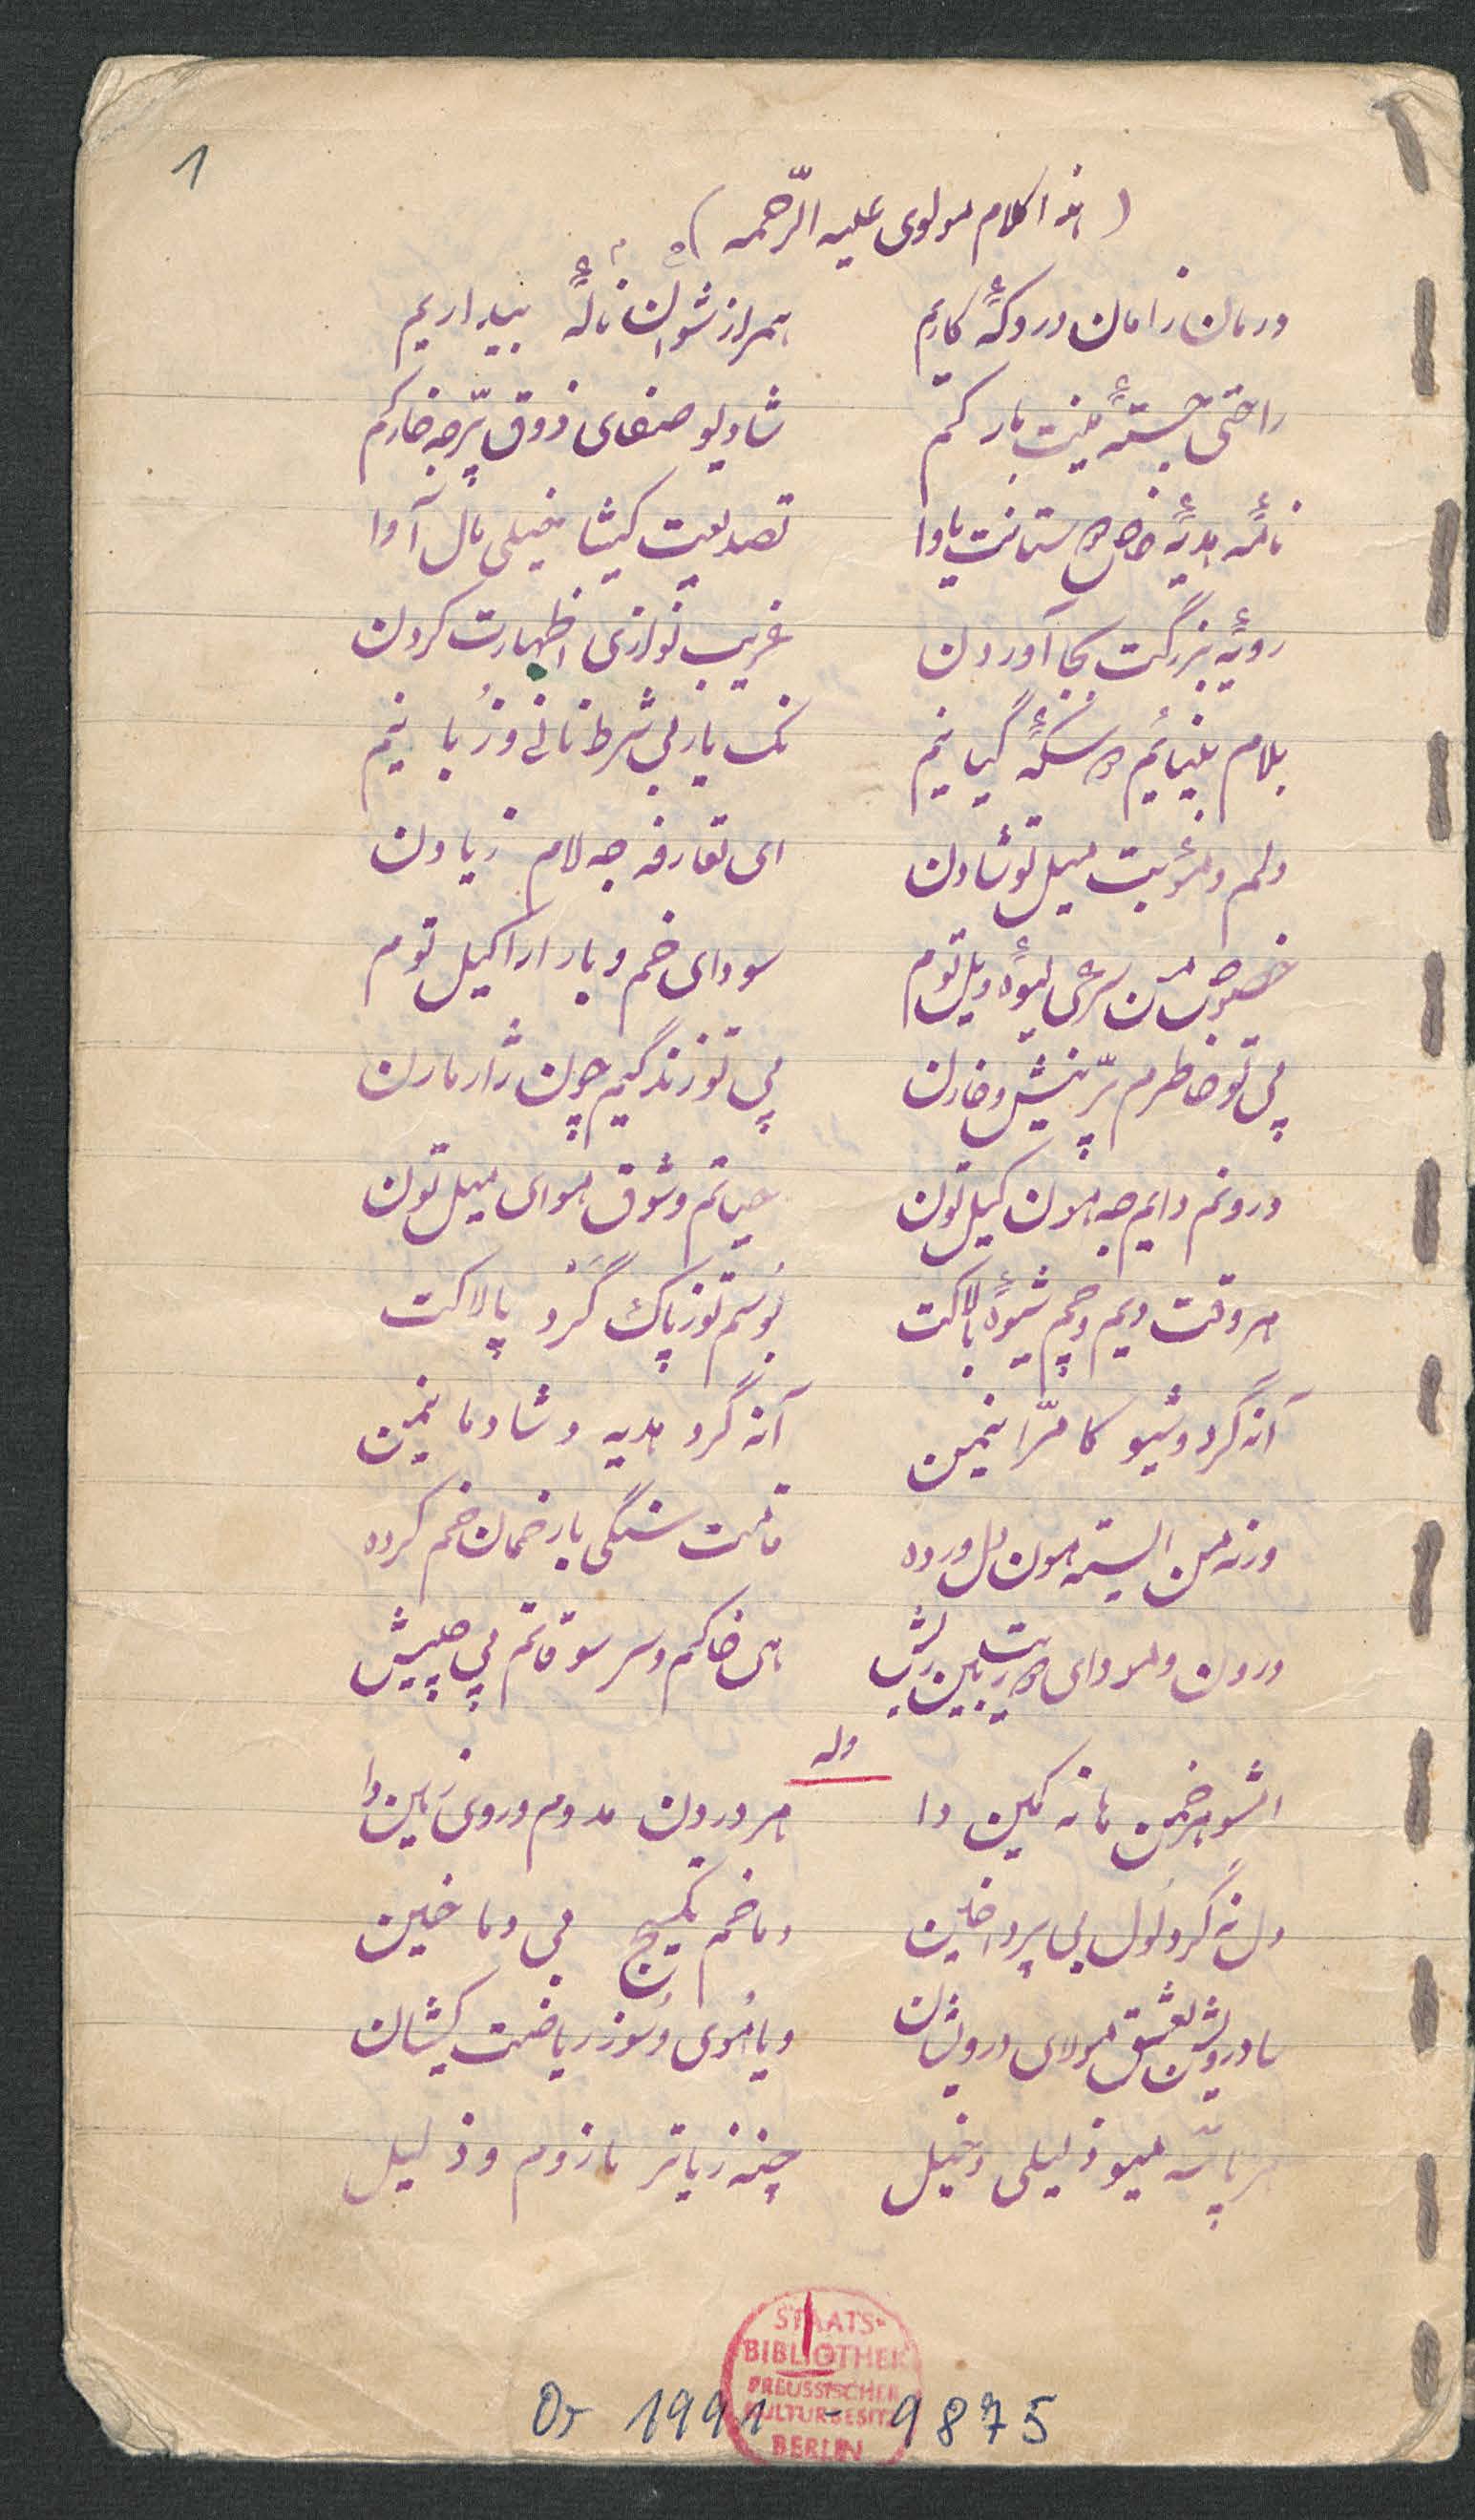 1
(هذا کلام مولوی علیه الرّحمه)
درمان زامان دردکهٔ کاریم همراز شوان نالهٔ بیداریم
راحتی جستهٔ مینت بارکم شادیو صفای ذوق پرّ جه خارکم
نامهٔ هدیهٔ خاص دستانت یاوا تصدیعت کیشا خیلی مال آوا
رویهٔ بزرگت بجا آوردن غریب نوازی اظهارت کردن
بلام بینائیم سکهٔ گیانیم نک یار بی شرط نانی و زبانیم
دلم میل تو شادن ای تعارفه جه لام زیادن
لیوهٔ ویل توم سودای خم و بار اراکیل توم
پی تو خاطرم پرّ نیش و خارن پی تو زندگیم چون ژار مارن
درونم دایم جه هون کیل تون حیاتم و شوق هوای میل تون
هر وقت دیم و چم شیوهٔ بالاکت بوسم توز پاک گرد پالاکت
آنه گرد وشیو کامرّانیمن آنه گرد هدیه و شادمانیمن
ورنه من ایسته هون دل ورده قامت سنگی بار خمان خم کرده
دردن و سودای ریش هی خاکم و سر سوقاتم پی چیش
وله
ایشو هرخمن مانه کمین دا هر دردن مدوم و روی زمین دا
دل نه گرد لول بی پرداخین دماخم پی دماخین
یا درویش بعشق مولای درویشان و یاهوی و سوز ریاضت کیشان
ذلیلی دخیل چنه زیاتر مازوم و ذلیل
STAATS-
BIBLIOTHEK
PREUSSISCHER
KULTURBESITZ
BERLIN
Or 1991 - 9875